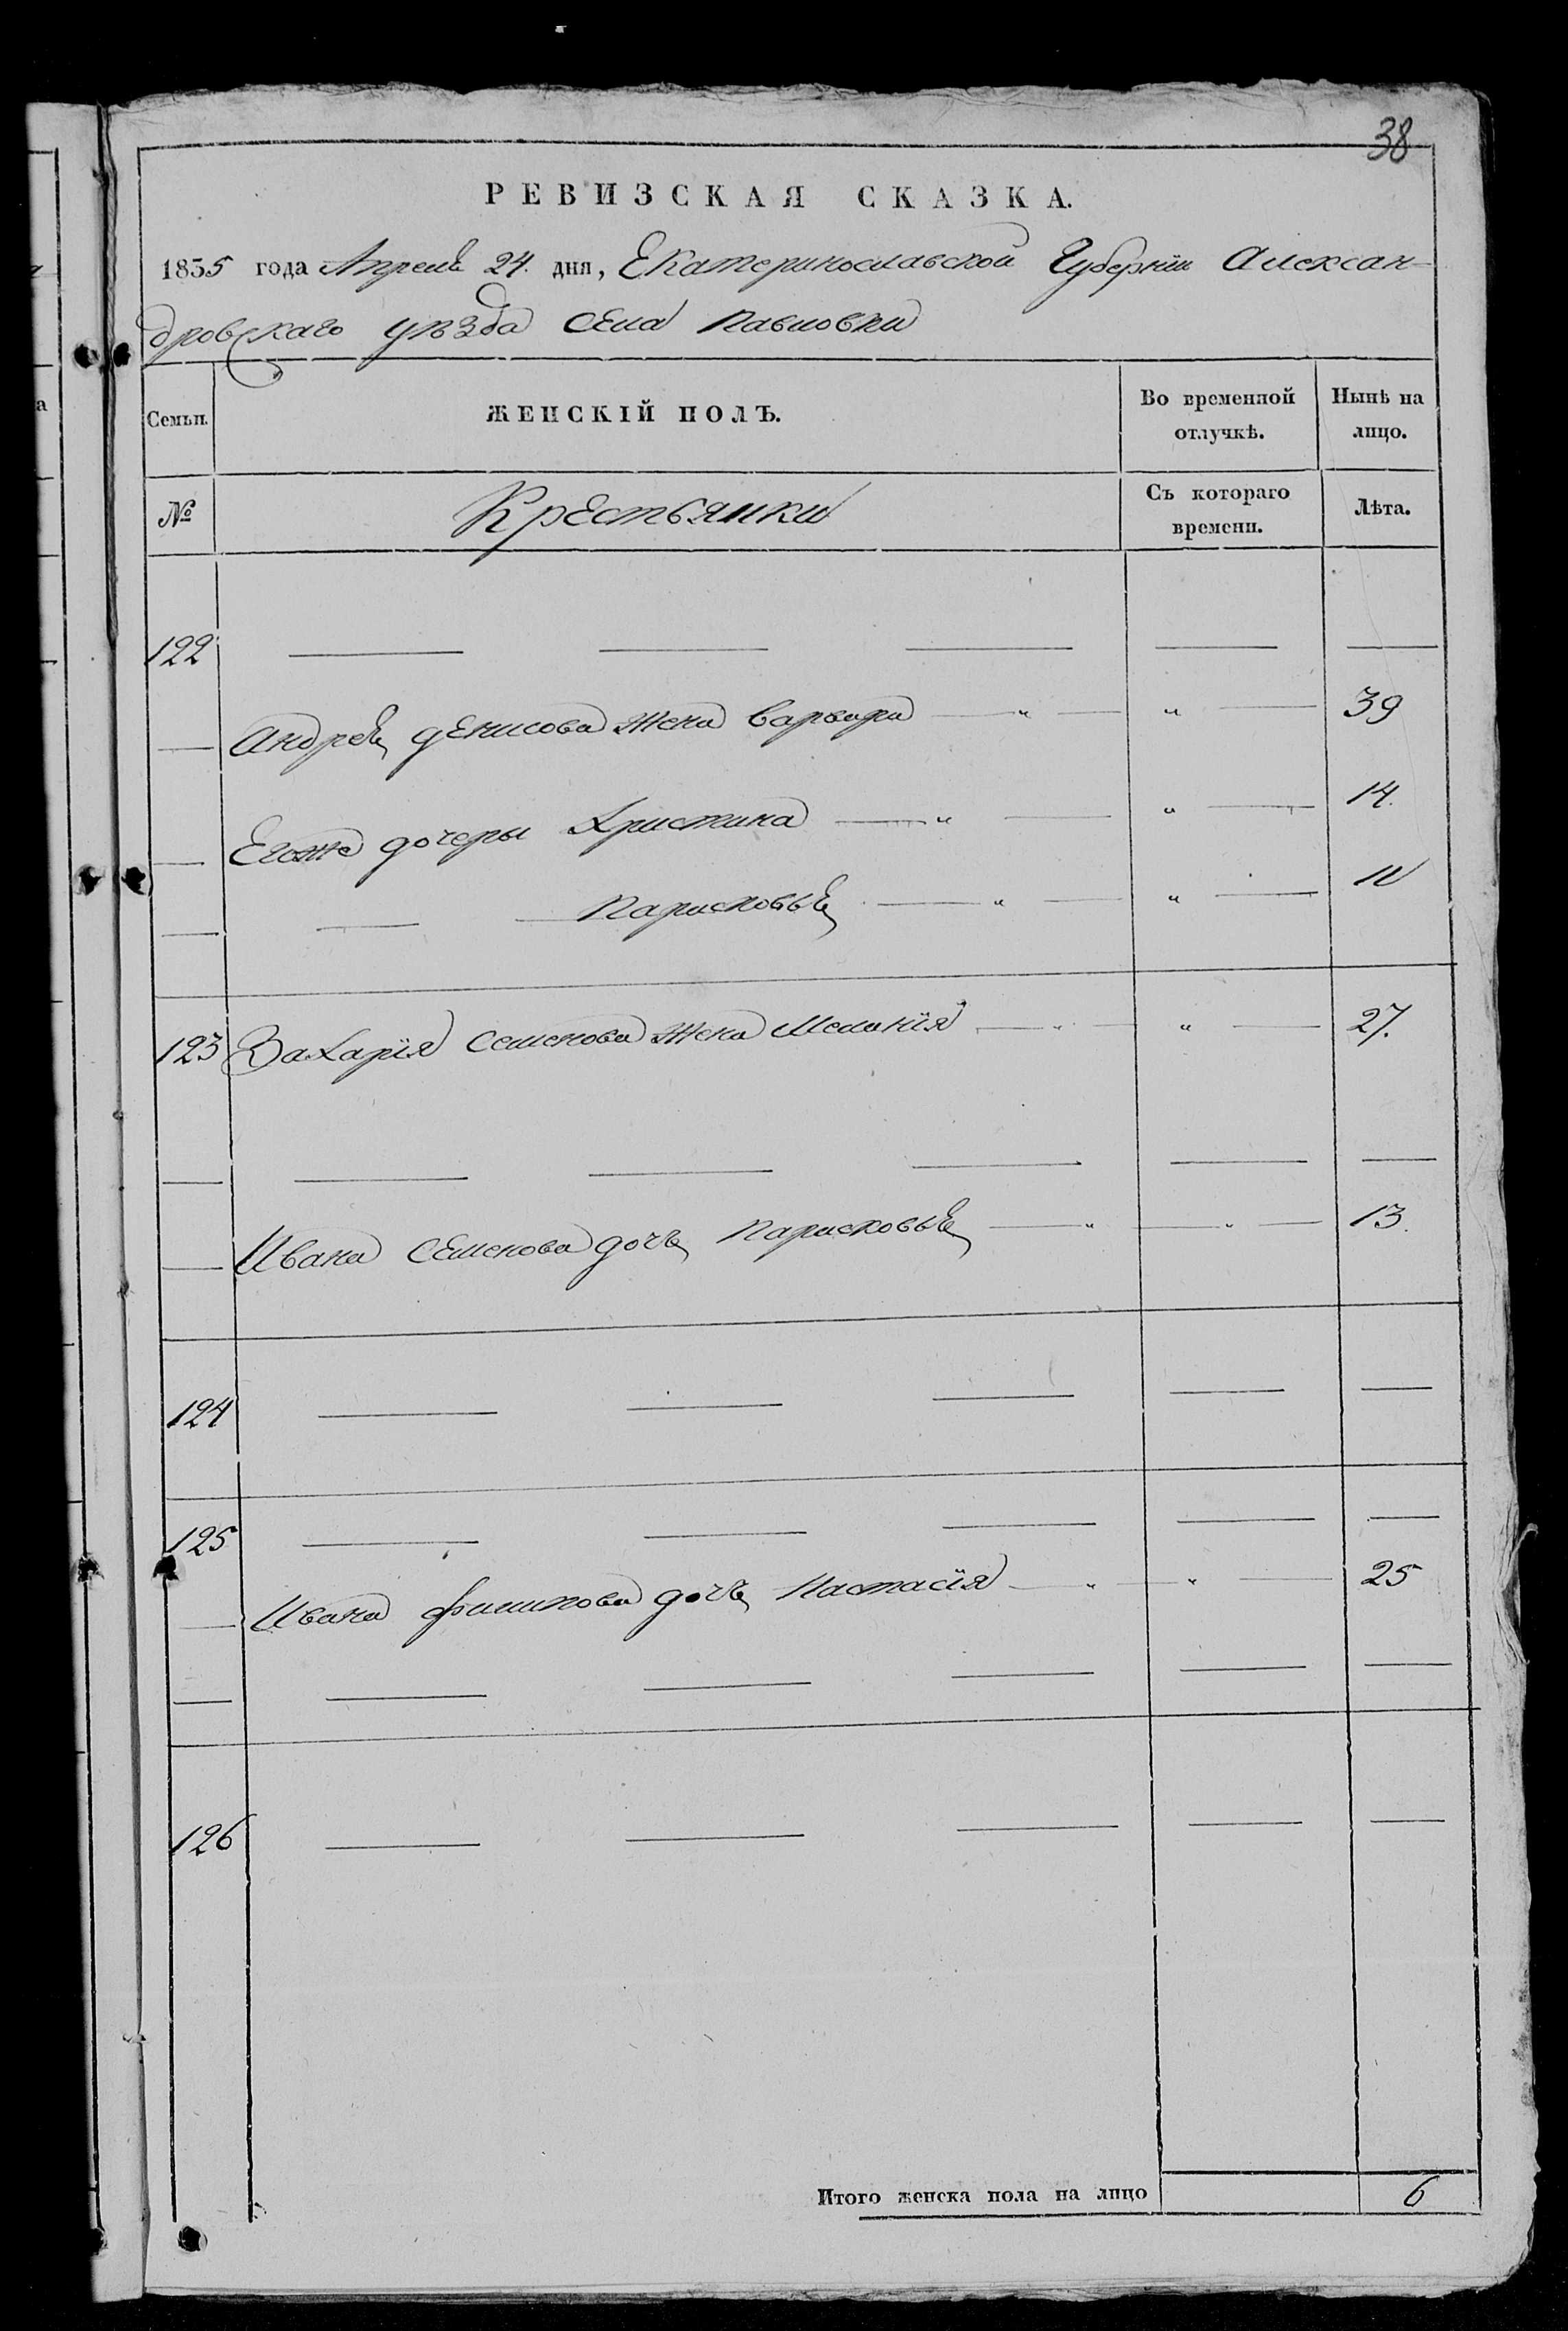 38
РЕВИЗСКАЯ СКАЗКА.
1835 года Апреля 24. дня, Екатеринославской Губернiи Алексан-
дровскаго уѣзда села Павловки
Семьи. ЖЕНСКIЙ ПОЛЪ. Во временной отлучкѣ. Нынѣ на лицо.
№ Крестьянки Съ котораго времени. Лѣта.
122 — — — — —
— Андрея Денисова жена Варвара — " — " — 39
— Егоже дочеры Христина — " — " — 14.
— — — Парасковья — " — " —
123 Захарiя Семенова жена Меланiя — " — " — 27.
— — — — — —
— Ивана Семенова дочь Парасковья — " — " — 13.
124 — — — — —
125 — — — — —
— Ивана Филипова дочь Настасiя — " — " — 25
— — — — — —
126 — — — — —
Итого женска пола на лицо 6